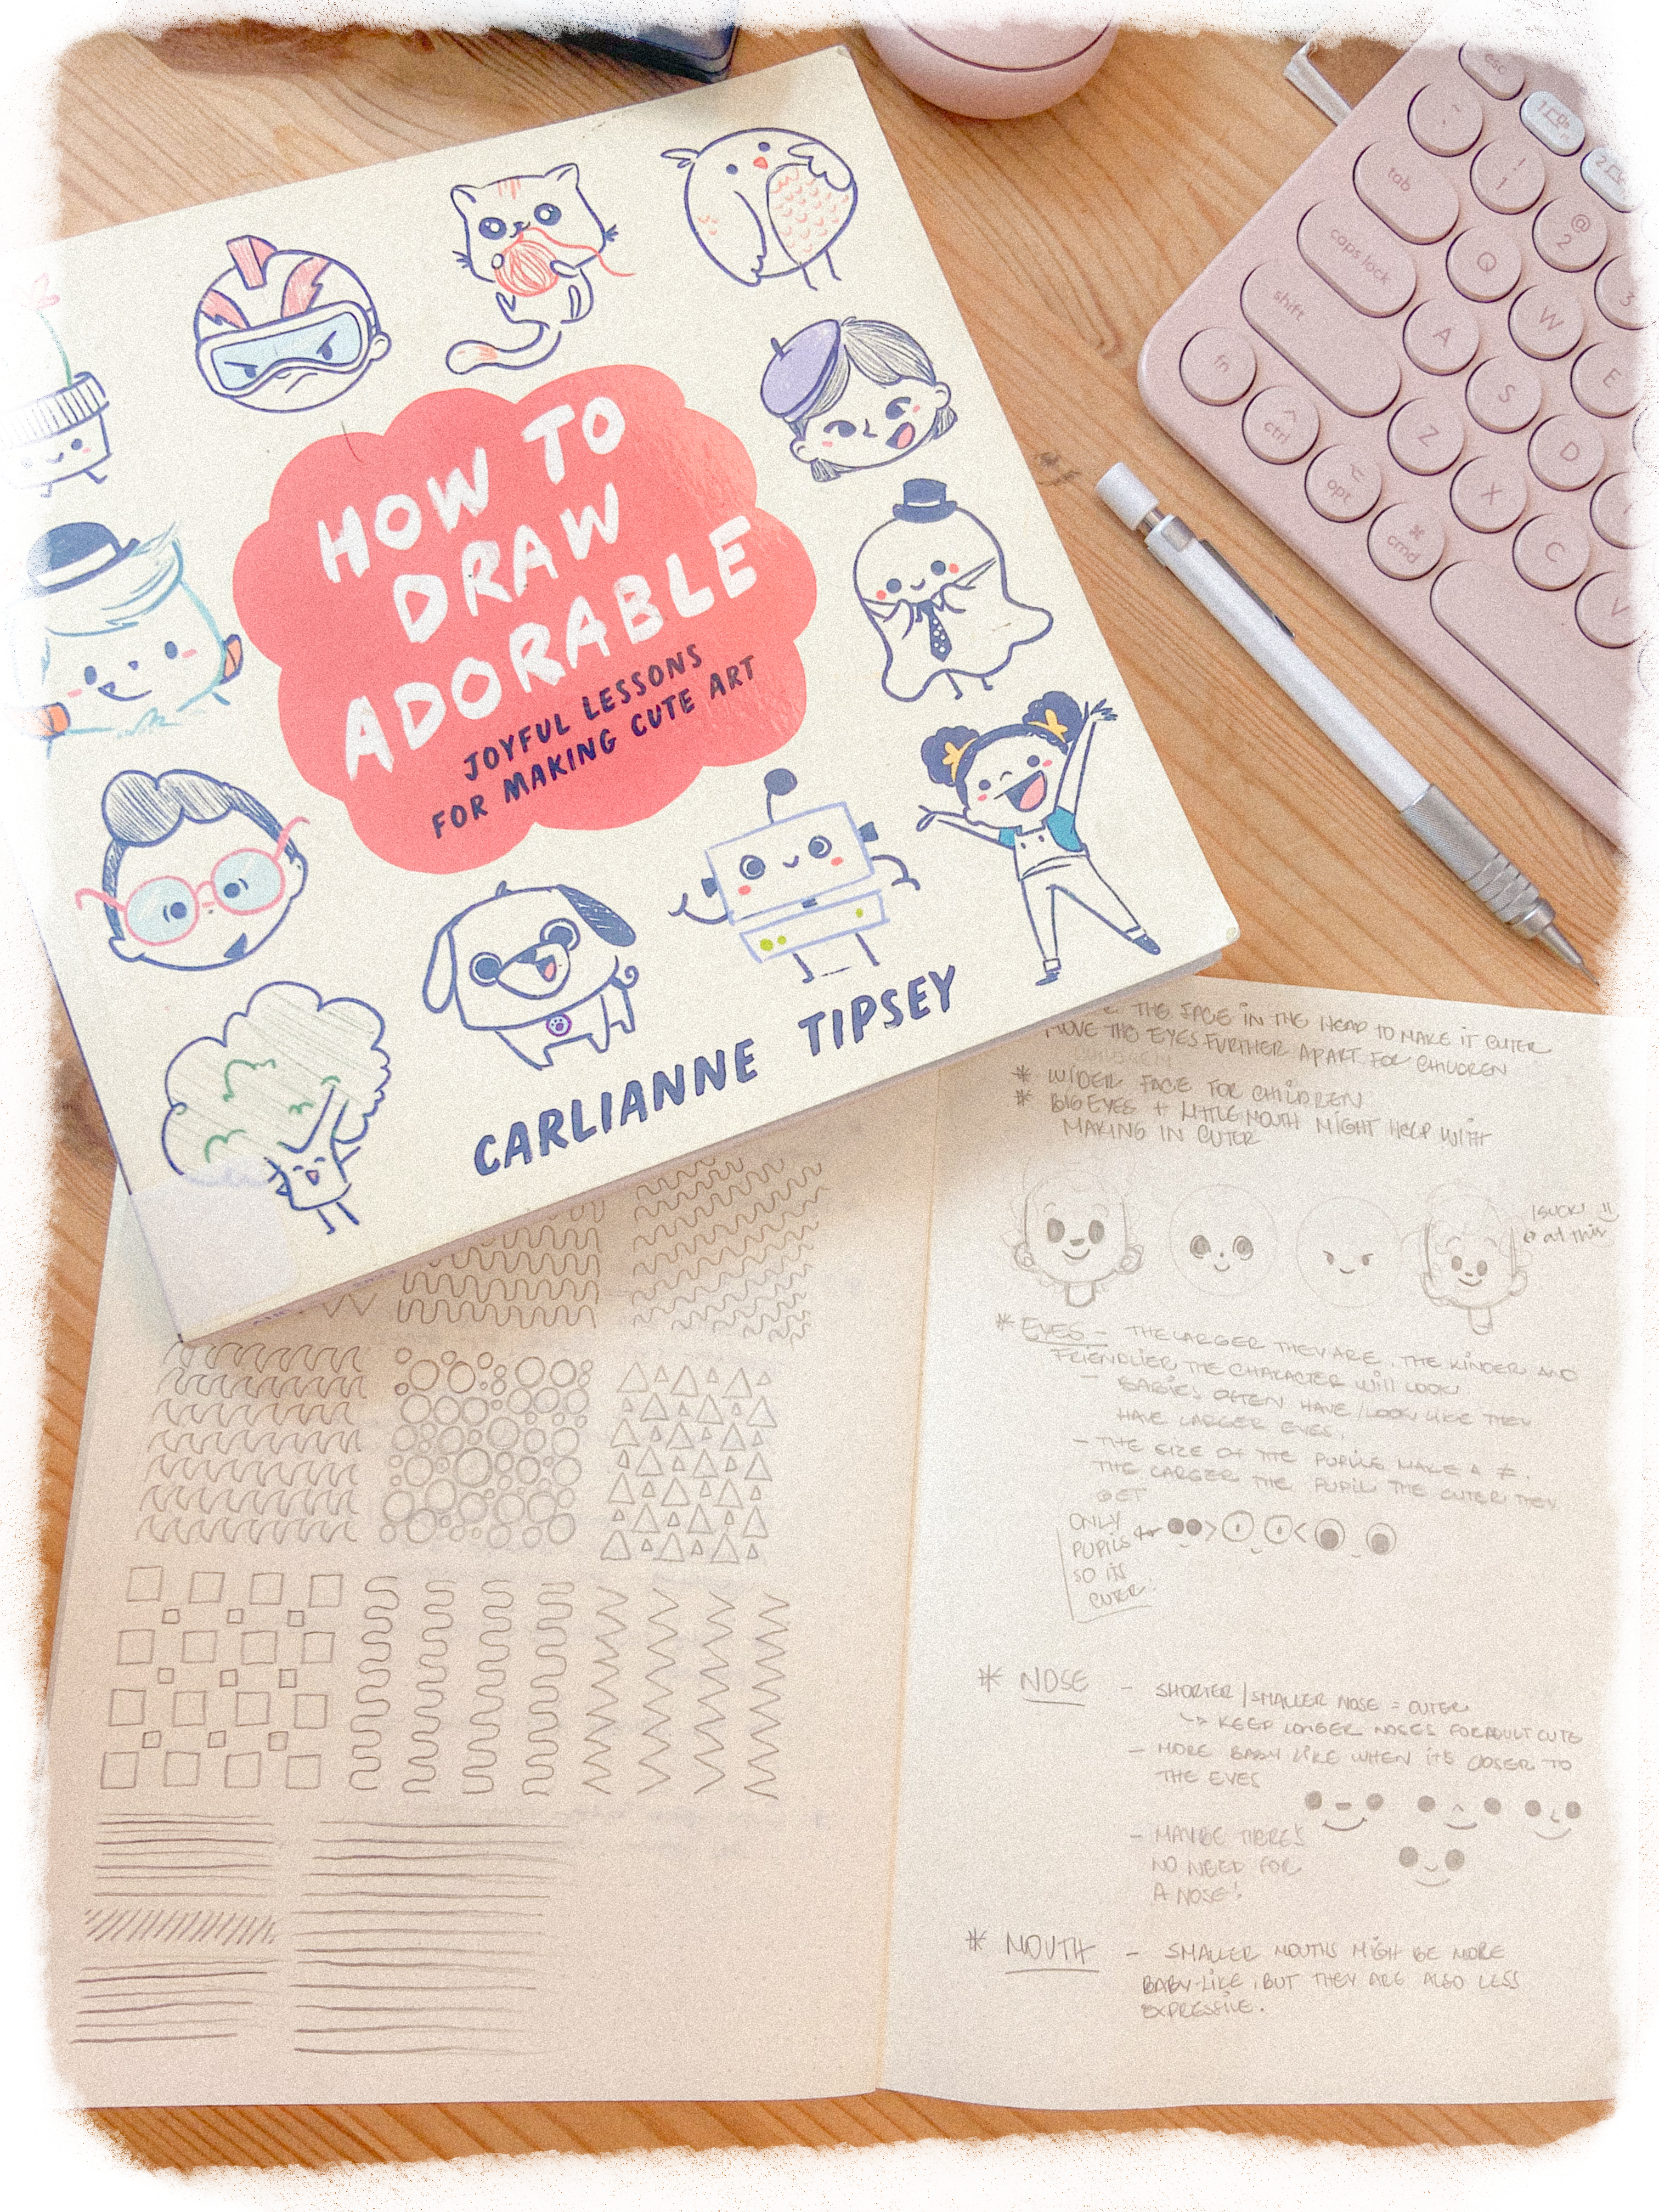 HOW TO
DRAW
ADORABLE
JOYFUL LESSONS
FOR MAKING CUTE ART
CARLIANNE TIPSEY
esc
tab
caps lock
shift
fn
ctrl
opt
cmd
!
1
@
2
3
Q
W
E
A
S
D
Z
X
C
V
THE FACE IN THE HEAD TO MAKE IT CUTER
MOVE THE EYES FURTHER APART FOR CHILDREN
* WIDER FACE FOR CHILDREN
* BIG EYES + LITTLE MOUTH MIGHT HELP WITH
MAKING IN CUTER
I SUCK
at this
* EYES - THE LARGER THEY ARE, THE KINDER AND
FRIENDLIER THE CHARACTER WILL LOOK
- BABIES OFTEN HAVE/LOOK LIKE THEY
HAVE LARGER EYES.
- THE SIZE OF THE PUPILS MAKE A ≠.
THE LARGER THE PUPIL THE CUTER THEY
GET
ONLY
PUPILS
SO ITS
CUTER!
* NOSE - SHORTER/SMALLER NOSE = CUTER
↳ KEEP LONGER NOSES FOR ADULT CUTE
- MORE BABY LIKE WHEN IT'S CLOSER TO
THE EYES
- MAYBE THERE'S
NO NEED FOR
A NOSE!
* MOUTH - SMALLER MOUTHS MIGH BE MORE
BABY-LIKE, BUT THEY ARE ALSO LESS
EXPRESSIVE.